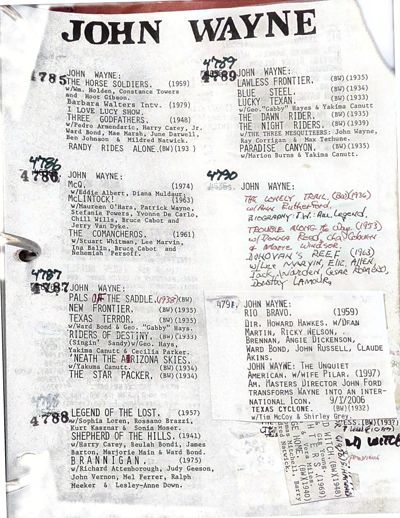 JOHN WAYNE
4785
JOHN WAYNE:
THE HORSE SOLDIERS. (1959)
w/Wm. Holden, Constance Towers
and Hoot Gibson.
Barbara Walters Intv. (1979)
I LOVE LUCY SHOW.
THREE GODFATHERS. (1948)
w/Pedro Armendaric, Harry Carey, Jr.
Ward Bond, Mae Marsh, June Darwell,
Ben Johnson & Mildred Natwick.
RANDY RIDES ALONE.(BW)(193 )
4786
4786
McQ. (1974)
w/Eddie Albert, Diana Muldaur.
McLINTOCK! (1963)
w/Maureen O'Hara, Patrick Wayne,
Stefanie Powers, Yvonne De Carlo,
Chill Wills, Bruce Cabot and
Jerry Van Dyke.
THE COMANCHEROS. (1961)
w/Stuart Whitman, Lee Marvin,
Ina Balin, Bruce Cabot and
Nehemiah Persoff.
4787
4787
JOHN WAYNE:
PALS OF THE SADDLE.(1938)(BW)
NEW FRONTIER. (BW)(1935)
TEXAS TERROR. (BW)(1935)
w/Ward Bond & Geo. "Gabby" Hays.
RIDERS OF DESTINY. (BW)(1933)
(Singin' Sandy)w/Geo. Hays,
Yakima Canutt & Cecilia Parker.
'NEATH THE ARIZONA SKIES.
w/Yakuma Canutt. (BW)(1934)
THE STAR PACKER. (BW)(1934)
4788
LEGEND OF THE LOST. (1957)
w/Sophia Loren, Rossano Brazzi,
Kurt Kasznar & Sonia Moser.
SHEPHERD OF THE HILLS. (1941)
w/Harry Carey, Beulah Bondi, James
Barton, Marjorie Main & Ward Bond.
BRANNIGAN. (1975)
w/Richard Attenborough, Judy Geeson,
John Vernon, Mel Ferrer, Ralph
Meeker & Lesley-Anne Down.
4789
4789
JOHN WAYNE:
LAWLESS FRONTIER. (BW)(1935)
BLUE STEEL. (BW)(1934)
LUCKY TEXAN. (BW)(1933)
w/Geo."Gabby" Hayes & Yakima Canutt
THE DAWN RIDER. (BW)(1935)
THE NIGHT RIDERS. (BW)(1939)
w/THE THREE MESQUITEERS: John Wayne,
Ray Corrigan & Max Terhune.
PARADISE CANYON. (BW)(1935)
w/Marion Burns & Yakima Canutt.
4790
JOHN WAYNE:
THE LONELY TRAIL (BW)(1936)
w/Ann Rutherford.
BIOGRAPHY: J.W. Am. Legend.
TROUBLE ALONG the Way. (1953)
w/Donna Reed, Chas. Coburn
& Marie Windsor.
DONOVAN'S REEF (1963)
w/Lee MARVIN, Eliz. Allen,
Jack Warden, Cesar Romero,
Dorothy Lamour.
4791.
JOHN WAYNE:
RIO BRAVO. (1959)
DIR. HOWARD HAWKES. w/DEAN
MARTIN, RICKY NELSON,
BRENNAN, ANGIE DICKENSON,
WARD BOND, JOHN RUSSELL, CLAUDE
AKINS.
JOHN WAYNE: THE UNQUIET
AMERICAN. W/WIFE PILAR. (1997)
AM. MASTERS DIRECTOR JOHN FORD
TRANSFORMS WAYNE INTO AN INTER-
NATIONAL ICON. 9/1/2006
TEXAS CYCLONE. (BW)(1932)
w/Tim McCoy & Shirley Grey.